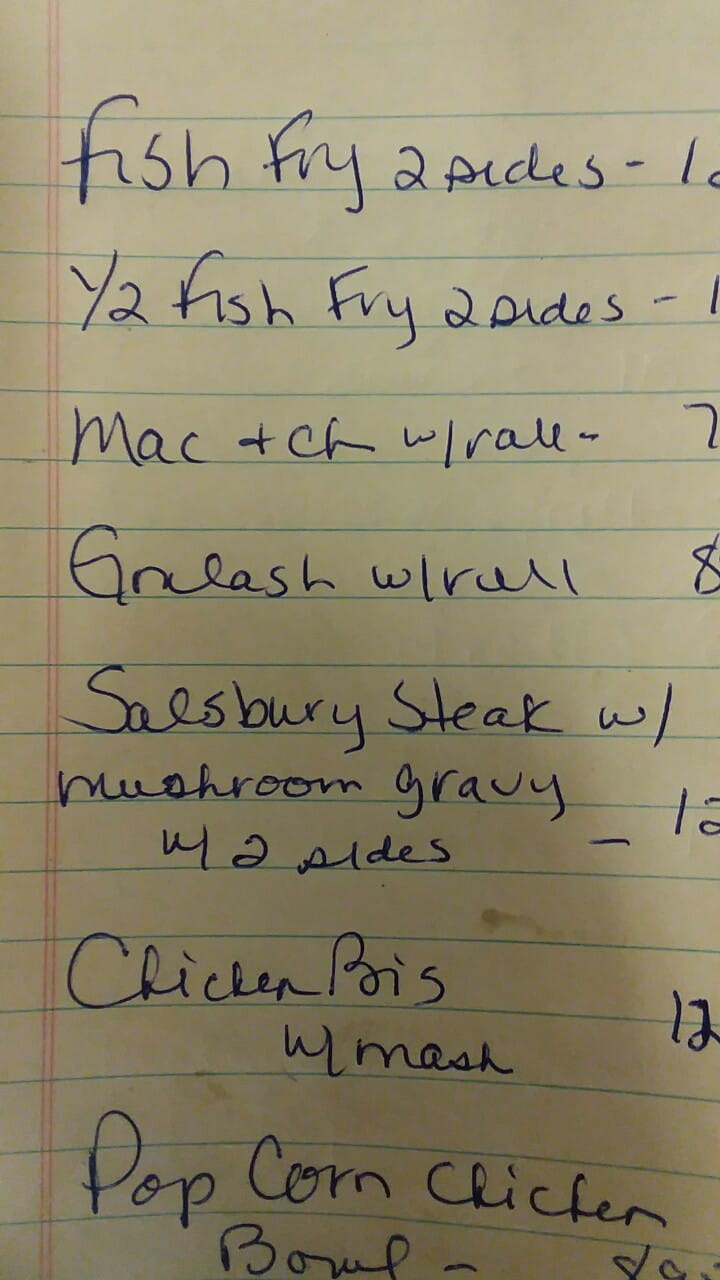 Fish Fry 2 sides - 12
1/2 Fish Fry 2 sides - 1
Mac + Ch w/roll - 7
Goulash w/roll 8
Salsbury Steak w/
mushroom gravy
w/ 2 sides - 12
Chicken Bis
w/ mash 12
Pop Corn Chicken
Bowl -